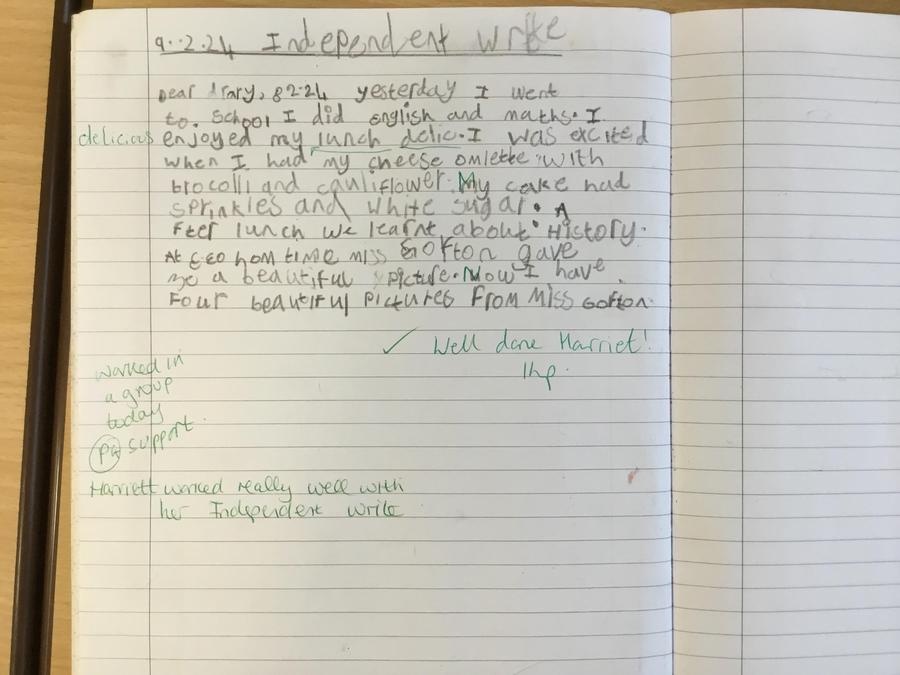 9..2.24 Independent write
Dear diary, 82.24 yesterday I went
to. School I did english and maths. I
delicious enjoyed my lunch delic. I was excited
when I had my cheese omlette. with
brocolli and cauliflower. My cake had
sprinkles and white sugar. A
Fter lunch we learnt about. History.
At hom time miss Gofton gave
a beautiful picture. Now I have
Four beautiful Pictures From Miss Gofton.
✓ Well done Harriet!
1hp.
worked in
a group
today
support.
Harriett worked really well with
her Independent write